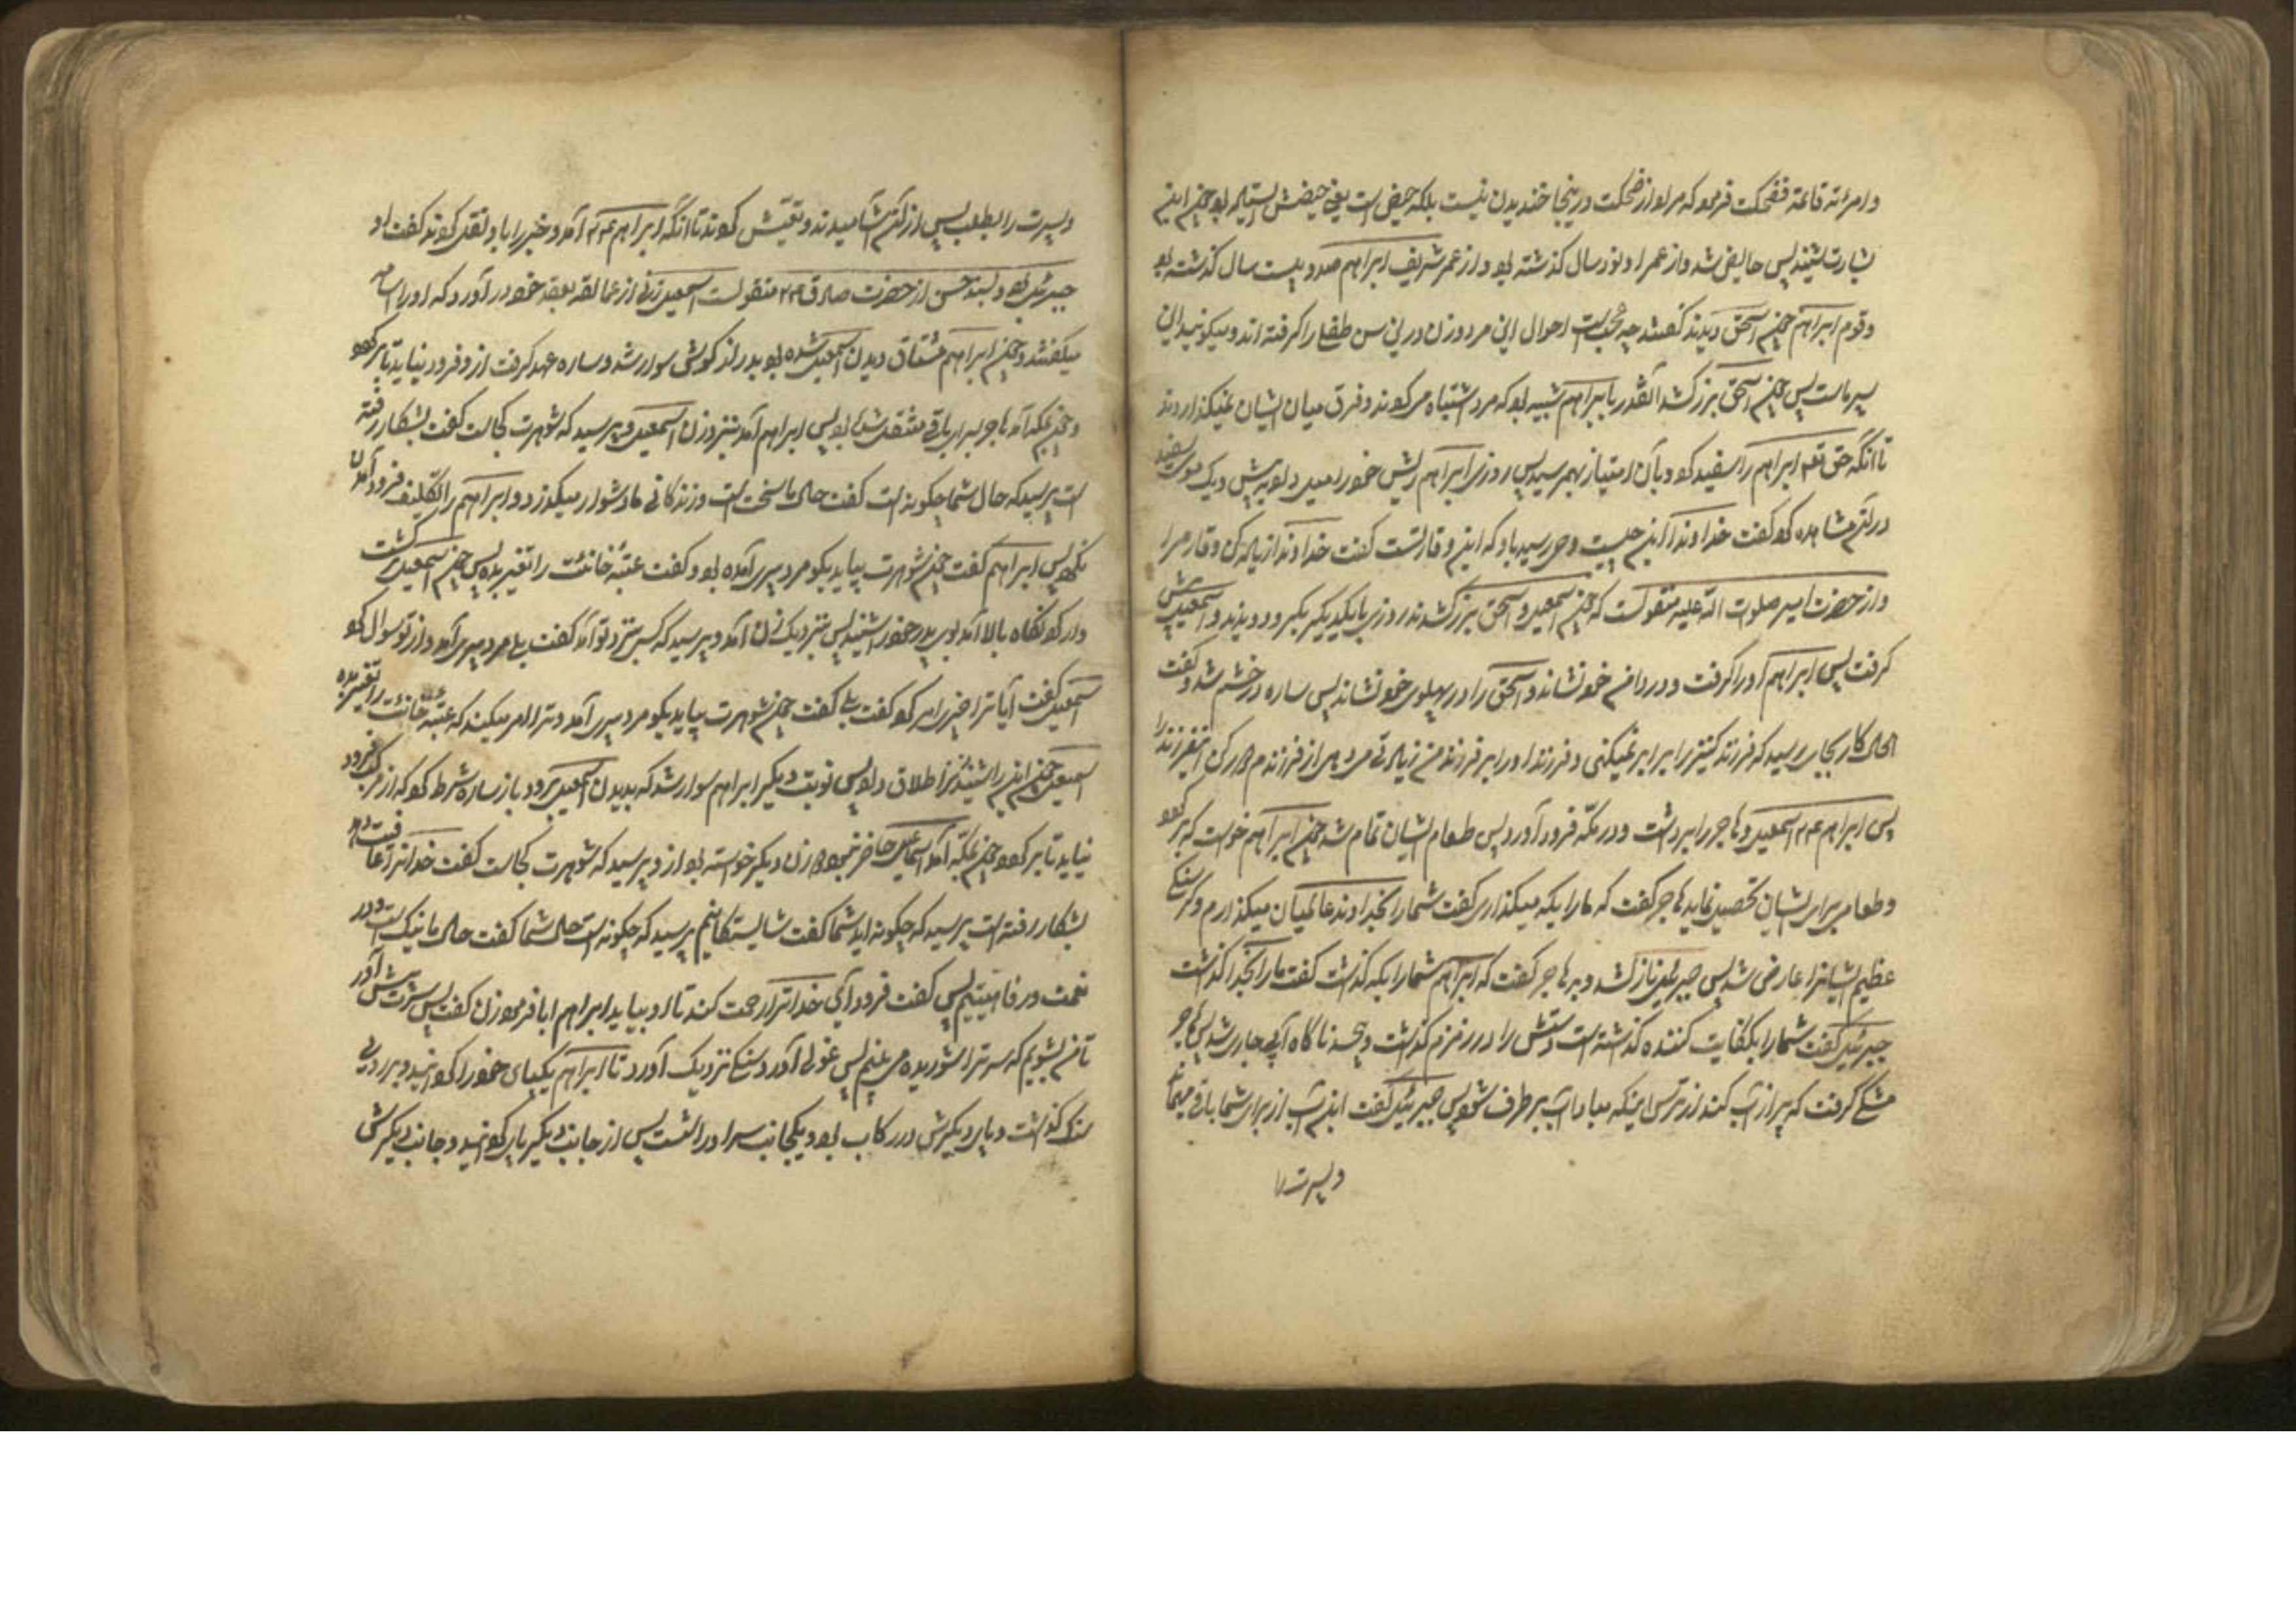 و امرءته قائمة فضحکت فرمود که مراد از ضحکت در اینجا خندیدن نیست بلکه حیض است یعنی حیضش بسته بود چون این
بشارت شنید پس حایض شد و از عمر او نود سال گذشته بود و از عمر شریف ابراهیم صد و بیست سال گذشته بود
و قوم ابراهیم چون اسحق دیدند گفتند چه عجب است احوال این مرد و زن در این سن طفلی را گرفته اند و میگویند این
پسر ماست پس چون اسحق بزرگ شد آنقدر بابراهیم شبیه بود که مردم اشتباه می کردند و فرق میان ایشان نمیگذاردند
تا آنکه حق تعالی ریش ابراهیم را سفید کرد و بآن امتیاز بهم رسید پس روزی ابراهیم ریش خود را میل داد پیش و یک موی سفید
در آن مشاهده کرد گفت خداوندا این چیست وحی رسید باو که این وقار تست گفت خداوندا زیاده کن وقار مرا
و از حضرت امیر صلوات الله علیه منقولست که چون اسمعیل و اسحق بزرگ شدند روزی با یکدیگر بگرو دویدند و اسمعیل پیش
گرفت پس ابراهیم او را گرفت و در دامن خود نشاند و اسحق را در پهلوی خود نشاند پس ساره در خشم شد و گفت
الحال کار بجایی رسید که فرزند کنیز را برابر نمیکنی و فرزند او را بر فرزند من زیادتی می دهی از فرزندم دور کن این فرزند را
پس ابراهیم اسمعیل و هاجر را برداشت و در مکه فرود آورد پس طعام ایشان تمام شد چون ابراهیم خواست که برگردد
و طعامی برای ایشان تحصیل نماید هاجر گفت که ما را بکه میگذاری گفت شما را بخداوند عالمیان میگذارم و گرسنگی
عظیم ایشانرا عارض شد پس جبرئیل نازل شد و بهاجر گفت که ابراهیم شما را بکه گذاشت گفت ما را بخدا گذاشت
جبرئیل گفت شما را بکفایت کننده گذاشته است و دستش را در زمزم گذاشت و پیچید ناگاه آبی جاری شد پس هاجر
مشکی گرفت که پر از آب کند از ترس اینکه مبادا آب برطرف شود پس جبرئیل گفت این آب از برای شما باقی میماند
و پسرت را
و پسرت را بطلب پس از آب آشامیدند و تعیش کردند تا آنکه ابراهیم آمد و خبر را باو نقل کردند گفت او
جبرئیل بود و بسند حسن از حضرت صادق منقولست اسمعیل زنی از عمالقه بعقد خود درآورد که او را سامه
میگفتند و چون ابراهیم مشتاق دیدن اسمعیل شده بود بر درازگوشی سوار شد و ساره عهد گرفت از او فرود نیاید تا برگردد
و چون بمکه آمد هاجر بسرای باقی منتقل شده بود پس ابراهیم آمد بنزد زن اسمعیل و پرسید که شوهرت کجاست گفت بشکار رفته
است پرسید که حال شما چگونه است گفت حال ما سخت است و زندگانی ما دشوار میگذرد و ابراهیم را تکلیف فرود آمدن
نکرد پس ابراهیم گفت چون شوهرت بیاید بگو مرد پیری آمده بود و گفت عتبه خانه ات را تغییر بده پس چون اسمعیل برگشت
و از کوه نگاه بالا آمد بوی پدر خود را شنید پس بنزدیک زن آمد و پرسید که کسی نزد تو آمد گفت بلی مرد پیری آمد و از تو سوال کرد
اسمعیل گفت آیا ترا خبری امر کرد گفت بلی گفت چون شوهرت بیاید بگو مرد پیری آمد و ترا امر میکند که عتبه خانه ات را تغییر بده
اسمعیل چون این را شنید زن را طلاق داد پس نوبت دیگر ابراهیم سوار شد که بدیدن اسمعیل برود باز ساره شرط کرد که از مرکب فرود
نیاید تا برگردد چون بمکه آمد اسماعیل حاضر نبود و زن دیگر خواسته بود از او پرسید که شوهرت کجاست گفت خدا ترا عافیت دهد
بشکار رفته است پرسید که چگونه اید شما گفت شایستگانیم پرسید که چگونه است حال شما گفت حال ما نیک است و در
نعمت و رفاهیتیم پس گفت فرود آی خدا ترا رحمت کند تا او بیاید ابراهیم ابا فرمود زن گفت پس سرت پیش آور
تا من بشویم که سر ترا شوریده می بینم پس غولی آورد و سنگی نزدیک آورد تا ابراهیم یکپای خود را کو نهید و بر روی
سنگ گذاشت و پای دیگرش در رکاب بود و یکجانب سر او را شست پس از جانب دیگر پای گردانید و جانب دیگرش